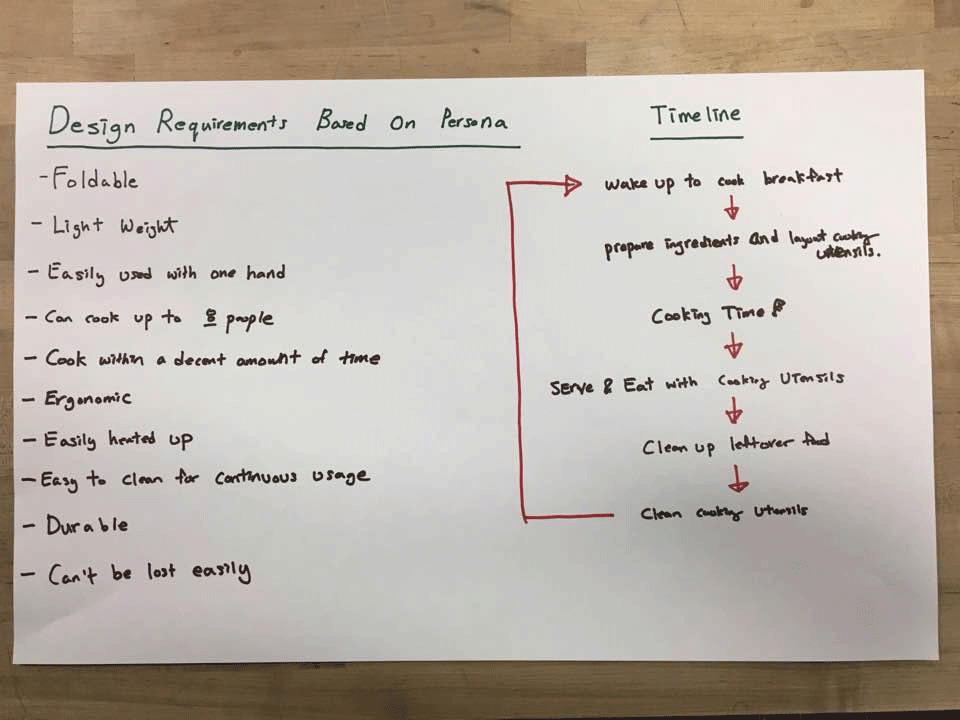 Design Requirements Based On Persona
- Foldable
- Light Weight
- Easily used with one hand
- Can cook up to 8 people
- Cook within a decent amount of time
- Ergonomic
- Easily heated up
- Easy to clean for continuous usage
- Durable
- Can't be lost easily
Timeline
Wake up to cook breakfast
prepare ingredients and layout cooking
utensils.
Cooking Time
Serve & Eat with Cooking Utensils
Clean up leftover food
Clean cooking utensils